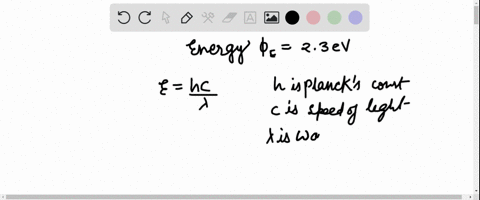 Energy ϕE = 2.3 eV
E = hc/λ
h is planck's const
c is speed of light
λ is wa